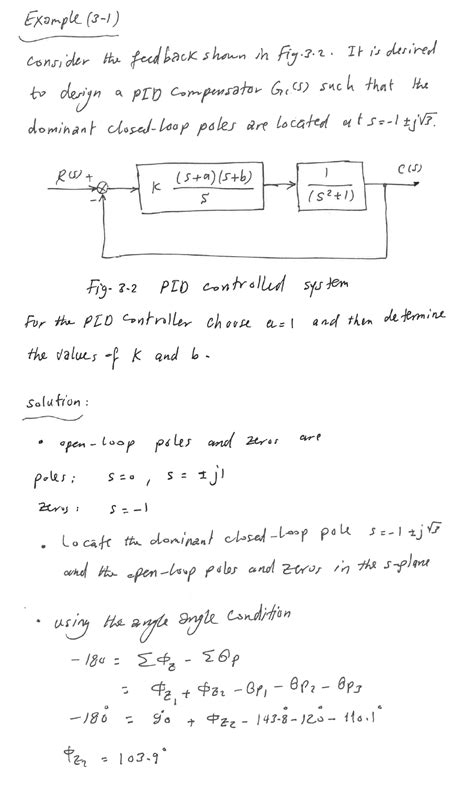 Example (3-1)
Consider the feedback shown in Fig.3.2. It is desired
to design a PID Compensator Gc(s) such that the
dominant closed-loop poles are located at s=-1±j√3.
R(s) + - K (s+a)(s+b)/s 1/(s²+1) C(s)
Fig-3-2 PID controlled system
For the PID Controller choose a=1 and then determine
the values of K and b.
Solution:
• open-loop poles and zeros are
poles: s=0, s=±j1
zeros: s=-1
• Locate the dominant closed-loop pole s=-1±j√3
and the open-loop poles and zeros in the s-plane
• using the angle angle condition
-180 = ΣΦz - Σθp
= Φz1 + Φz2 - θp1 - θp2 - θp3
-180° = 90° + Φz2 - 143.8° - 120° - 110.1°
Φz2 = 103.9°